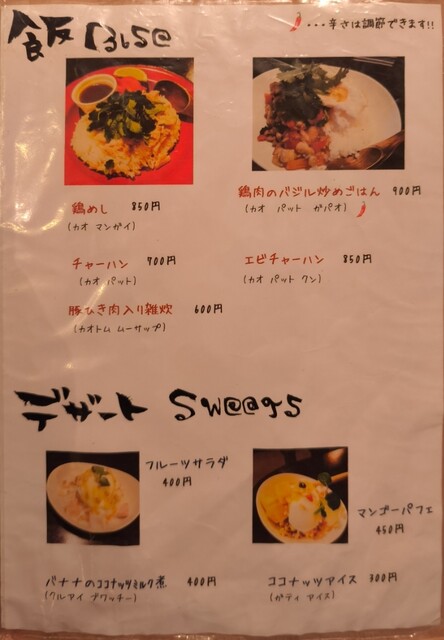 飯
・・・辛さは調節できます!!
鶏めし 850円
(カオ マンガイ)
鶏肉のバジル炒めごはん 900円
(カオ パット ガパオ)
チャーハン 700円
(カオ パット)
エビチャーハン 850円
(カオ パット クン)
豚ひき肉入り雑炊 600円
(カオトム ムーサップ)
デザート
フルーツサラダ
400円
マンゴーパフェ
450円
バナナのココナッツミルク煮 400円
(クルアイ ブワッチー)
ココナッツアイス 300円
(ガティ アイス)